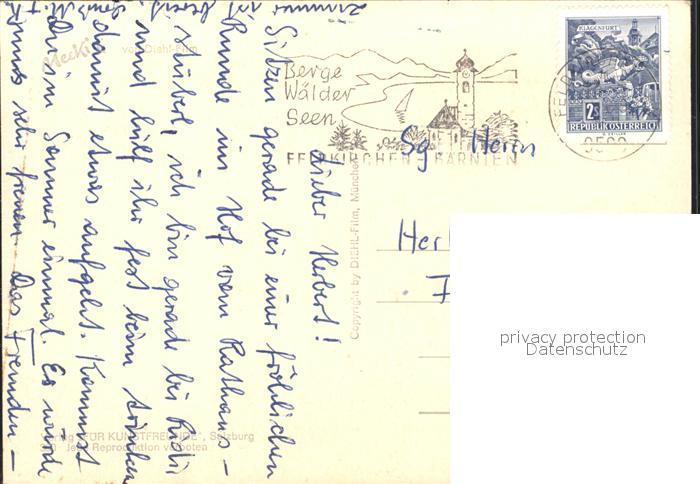 Mecki
von Diehl-Film
Berge
Wälder
Seen
FELDKIRCHEN - KÄRNTEN
KLAGENFURT
2S
REPUBLIK ÖSTERREICH
9560
Sg. Herrn
Her
F
Copyright by DIEHL-Film, München
Lieber Herbert!
Sitzen gerade bei einer fröhlichen
Runde im Hof vom Rathaus-
stüberl, ich bin gerade bei
und hilf ihr fest beim trinken
damit etwas aufgeht. Kommst
Du im Sommer einmal. Es würde
uns sehr freuen. Das Fremden-
zimmer ist bereit.
Verlag "FÜR KUNSTFREUNDE", Salzburg
Jede Reproduktion verboten
privacy protection
Datenschutz